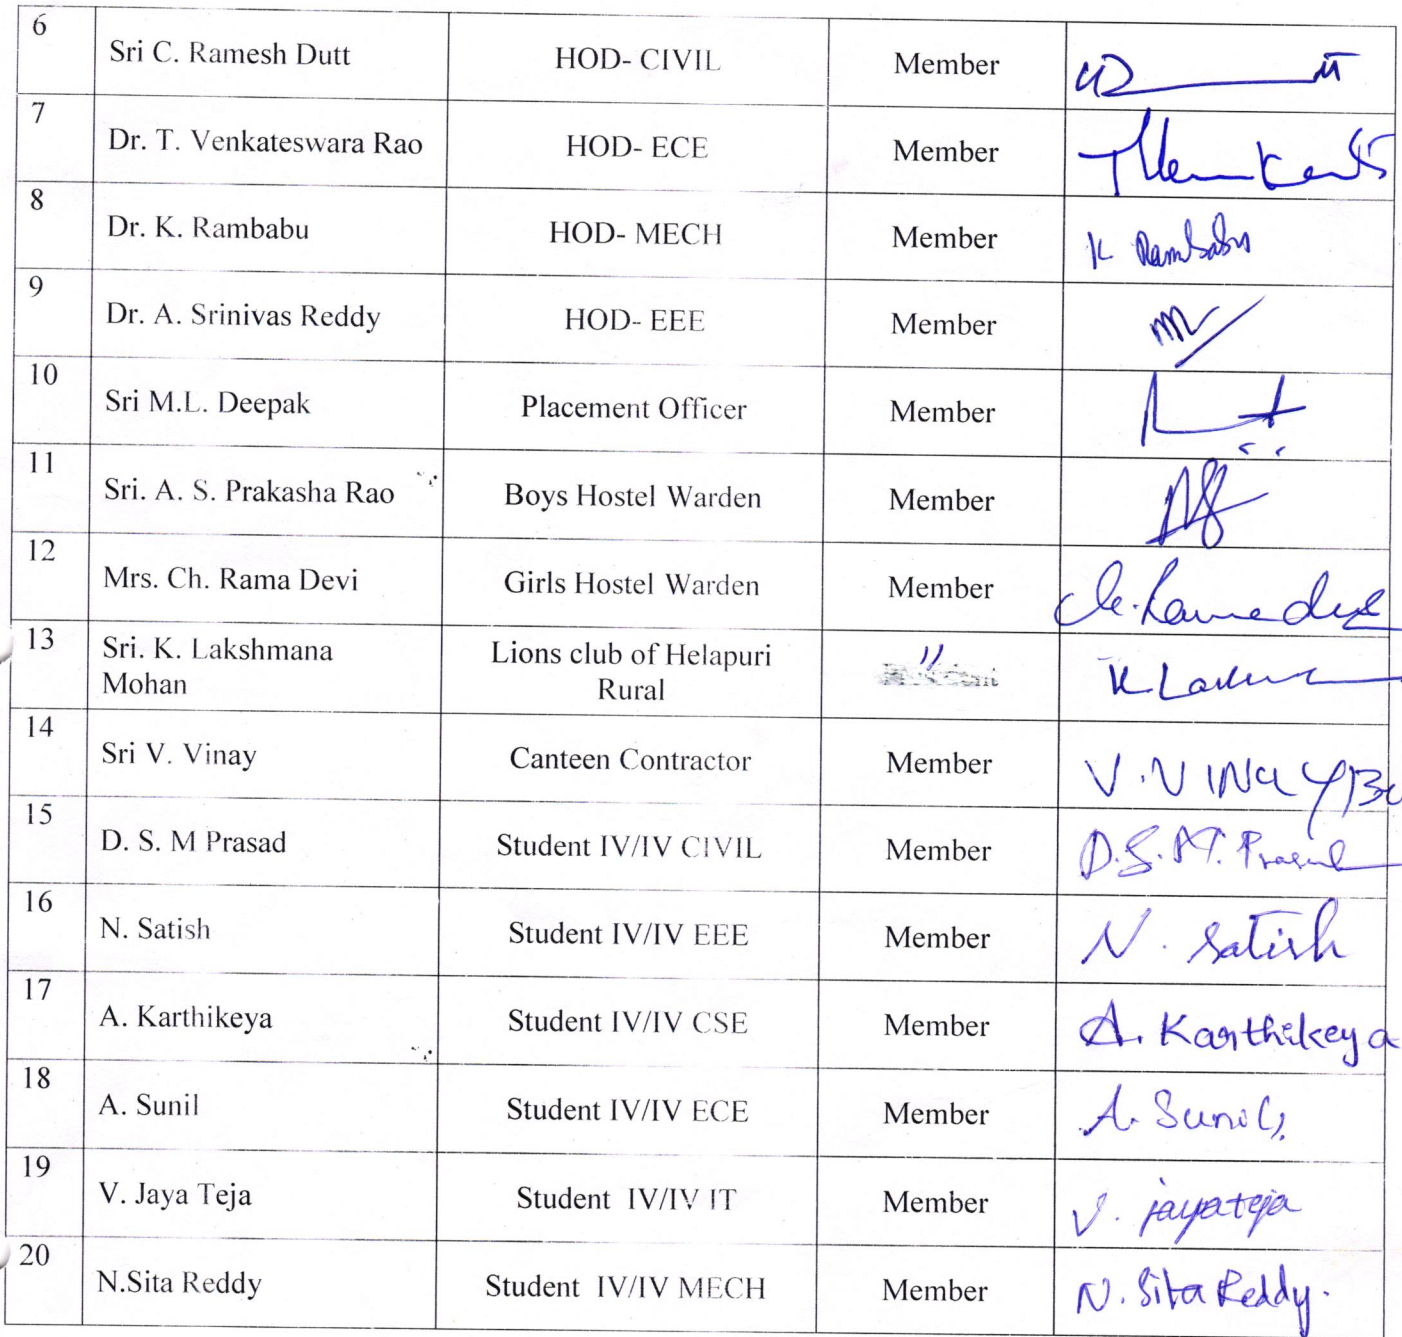 6 Sri C. Ramesh Dutt HOD- CIVIL Member
7 Dr. T. Venkateswara Rao HOD- ECE Member
8 Dr. K. Rambabu HOD- MECH Member K Rambabu
9 Dr. A. Srinivas Reddy HOD- EEE Member
10 Sri M.L. Deepak Placement Officer Member
11 Sri. A. S. Prakasha Rao Boys Hostel Warden Member
12 Mrs. Ch. Rama Devi Girls Hostel Warden Member
13 Sri. K. Lakshmana Lions club of Helapuri "
Mohan Rural
14 Sri V. Vinay Canteen Contractor Member
15 D. S. M Prasad Student IV/IV CIVIL Member D.S.M. Prasad
16 N. Satish Student IV/IV EEE Member N. Satish
17 A. Karthikeya Student IV/IV CSE Member A. Karthikeya
18 A. Sunil Student IV/IV ECE Member A. Sunil
19 V. Jaya Teja Student IV/IV IT Member V. jayateja
20 N.Sita Reddy Student IV/IV MECH Member N. Sita Reddy.